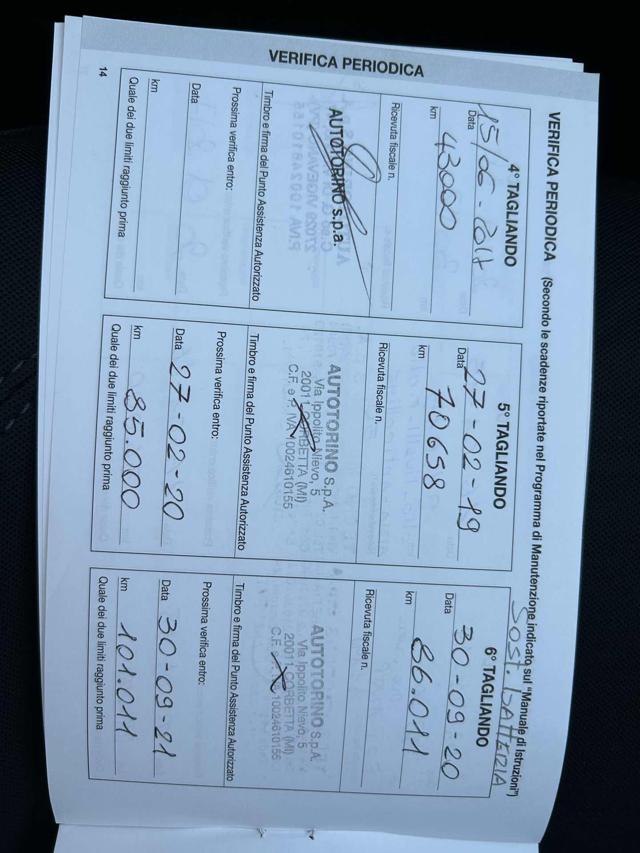 VERIFICA PERIODICA
VERIFICA PERIODICA (Secondo le scadenze riportate nel Programma di Manutenzione indicato sul "Manuale di Istruzioni")
4° TAGLIANDO
Data 15/06-2017
km 43000
Ricevuta fiscale n.
AUTOTORINO s.p.a.
Timbro e firma del Punto Assistenza Autorizzato
Prossima verifica entro:
Data
km
Quale dei due limiti raggiunto prima
5° TAGLIANDO
Data 27-02-19
km 70658
Ricevuta fiscale n.
AUTOTORINO S.p.A.
Via Ippolito Nievo, 5
(MI)
C.F. e
Timbro e firma del Punto Assistenza Autorizzato
Prossima verifica entro:
Data 27-02-20
km 85.000
Quale dei due limiti raggiunto prima
SOST. BATTERIA
6° TAGLIANDO
Data 30-09-20
km 86.011
Ricevuta fiscale n.
AUTOTORINO S.p.A.
Via Ippolito Nievo, 5
(MI)
C.F.
Timbro e firma del Punto Assistenza Autorizzato
Prossima verifica entro:
Data 30-09-21
km 101.011
Quale dei due limiti raggiunto prima
14